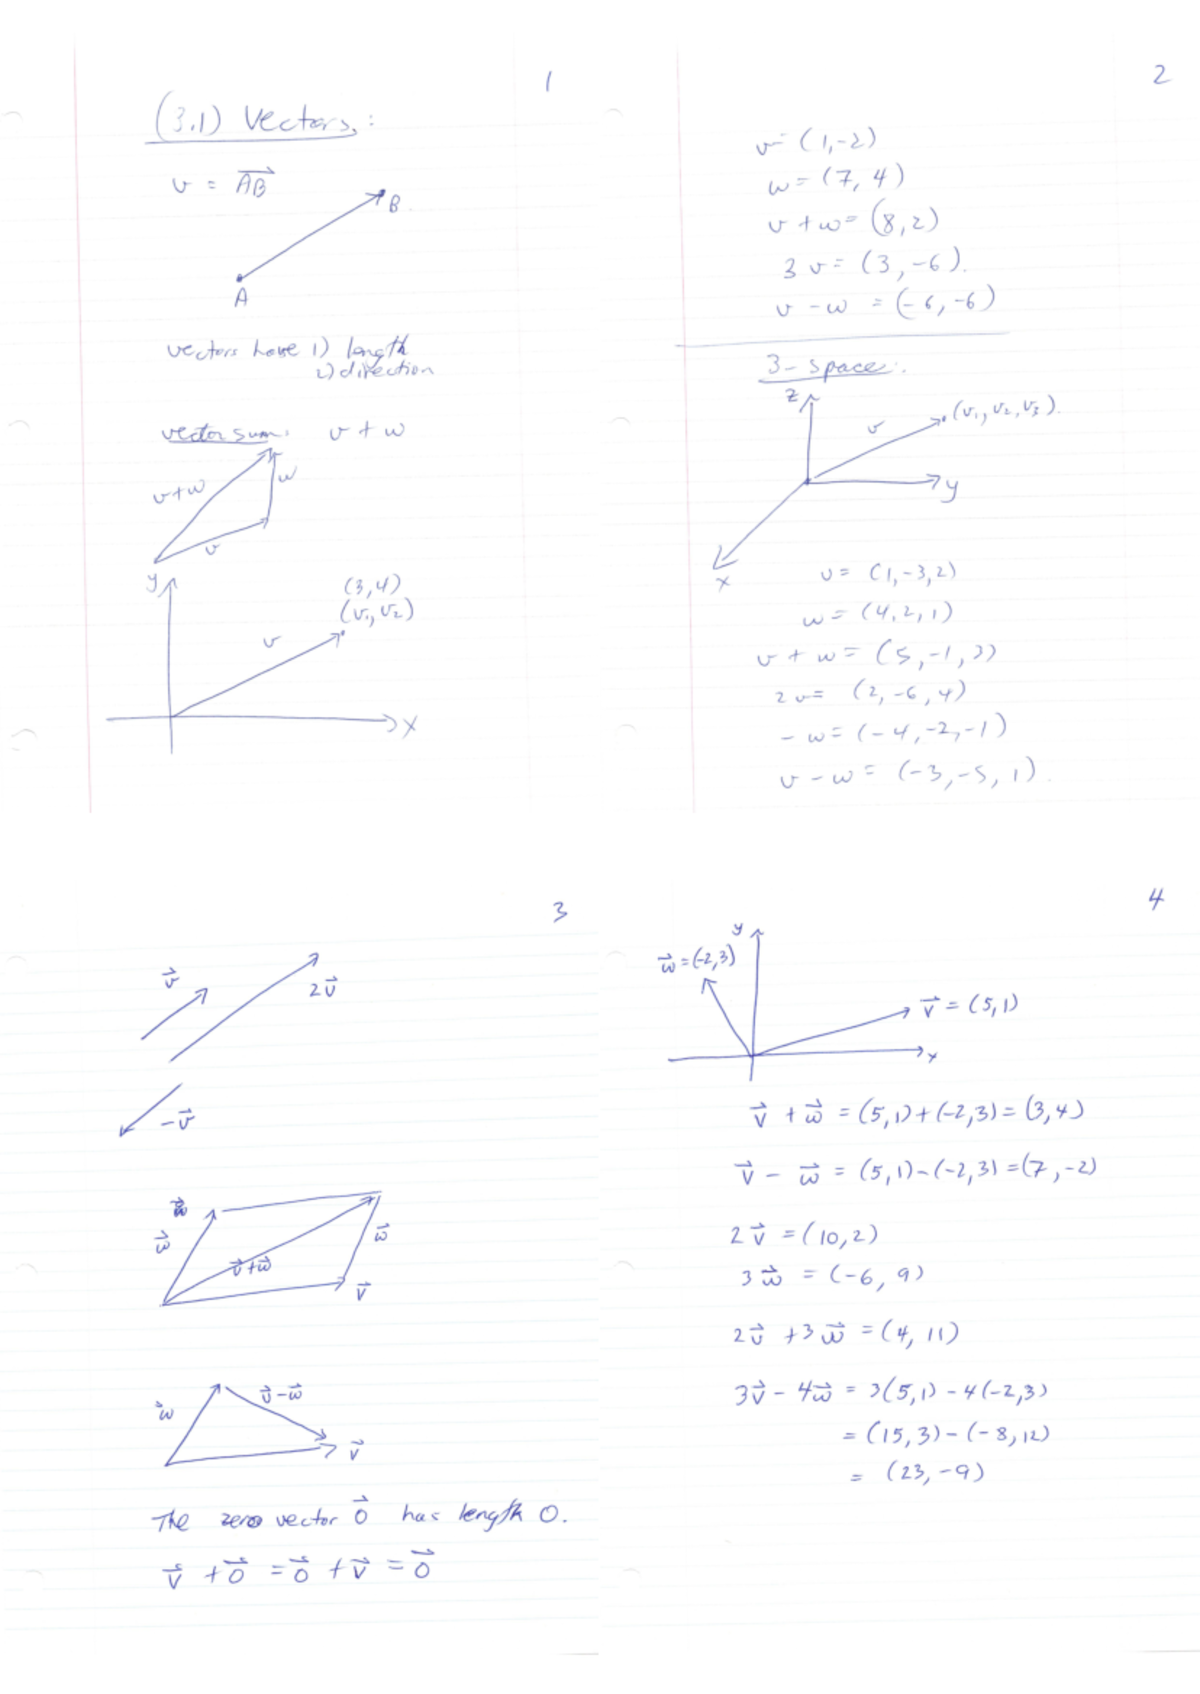 1
(3.1) Vectors:
v = A⃗B⃗
B
A
vectors have 1) length
2) direction
vector sum: v + w
v+w
w
v
y
(3,4)
(v₁, v₂)
v
x
2
v = (1,-2)
w = (7, 4)
v + w = (8,2)
3v = (3,-6).
v - w = (-6,-6)
3-space:
z
(v₁, v₂, v₃).
v
y
x
v = (1,-3,2)
w = (4,2,1)
v + w = (5,-1,3)
2v = (2,-6,4)
-w = (-4,-2,-1)
v - w = (-3,-5,1).
3
v⃗
2v⃗
-v⃗
w⃗
w⃗
v⃗+w⃗
v⃗
v⃗-w⃗
w⃗
v⃗
The zero vector 0⃗ has length 0.
v⃗ + 0⃗ = 0⃗ + v⃗ = 0⃗
4
y
w⃗ = (-2,3)
v⃗ = (5,1)
x
v⃗ + w⃗ = (5,1)+(-2,3) = (3,4)
v⃗ - w⃗ = (5,1)-(-2,3) = (7,-2)
2v⃗ = (10,2)
3w⃗ = (-6, 9)
2v⃗ + 3w⃗ = (4, 11)
3v⃗ - 4w⃗ = 3(5,1) - 4(-2,3)
= (15,3) - (-8,12)
= (23,-9)